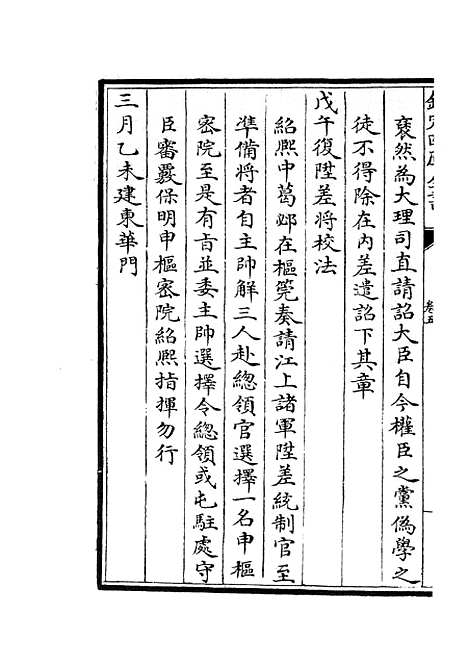 欽定四庫全書
卷五
裦然為大理司直請詔大臣自今權臣之黨偽學之
徒不得除在内差遣詔下其章
戊午復陞差將校法
紹熙中葛邲在樞筦奏請江上諸軍陞差統制官至
凖備將者自主帥解三人赴總領官選擇一名申樞
宻院至是有旨並委主帥選擇令總領或屯駐處守
臣審覈保明申樞宻院紹熙指揮勿行
三月乙未建東華門